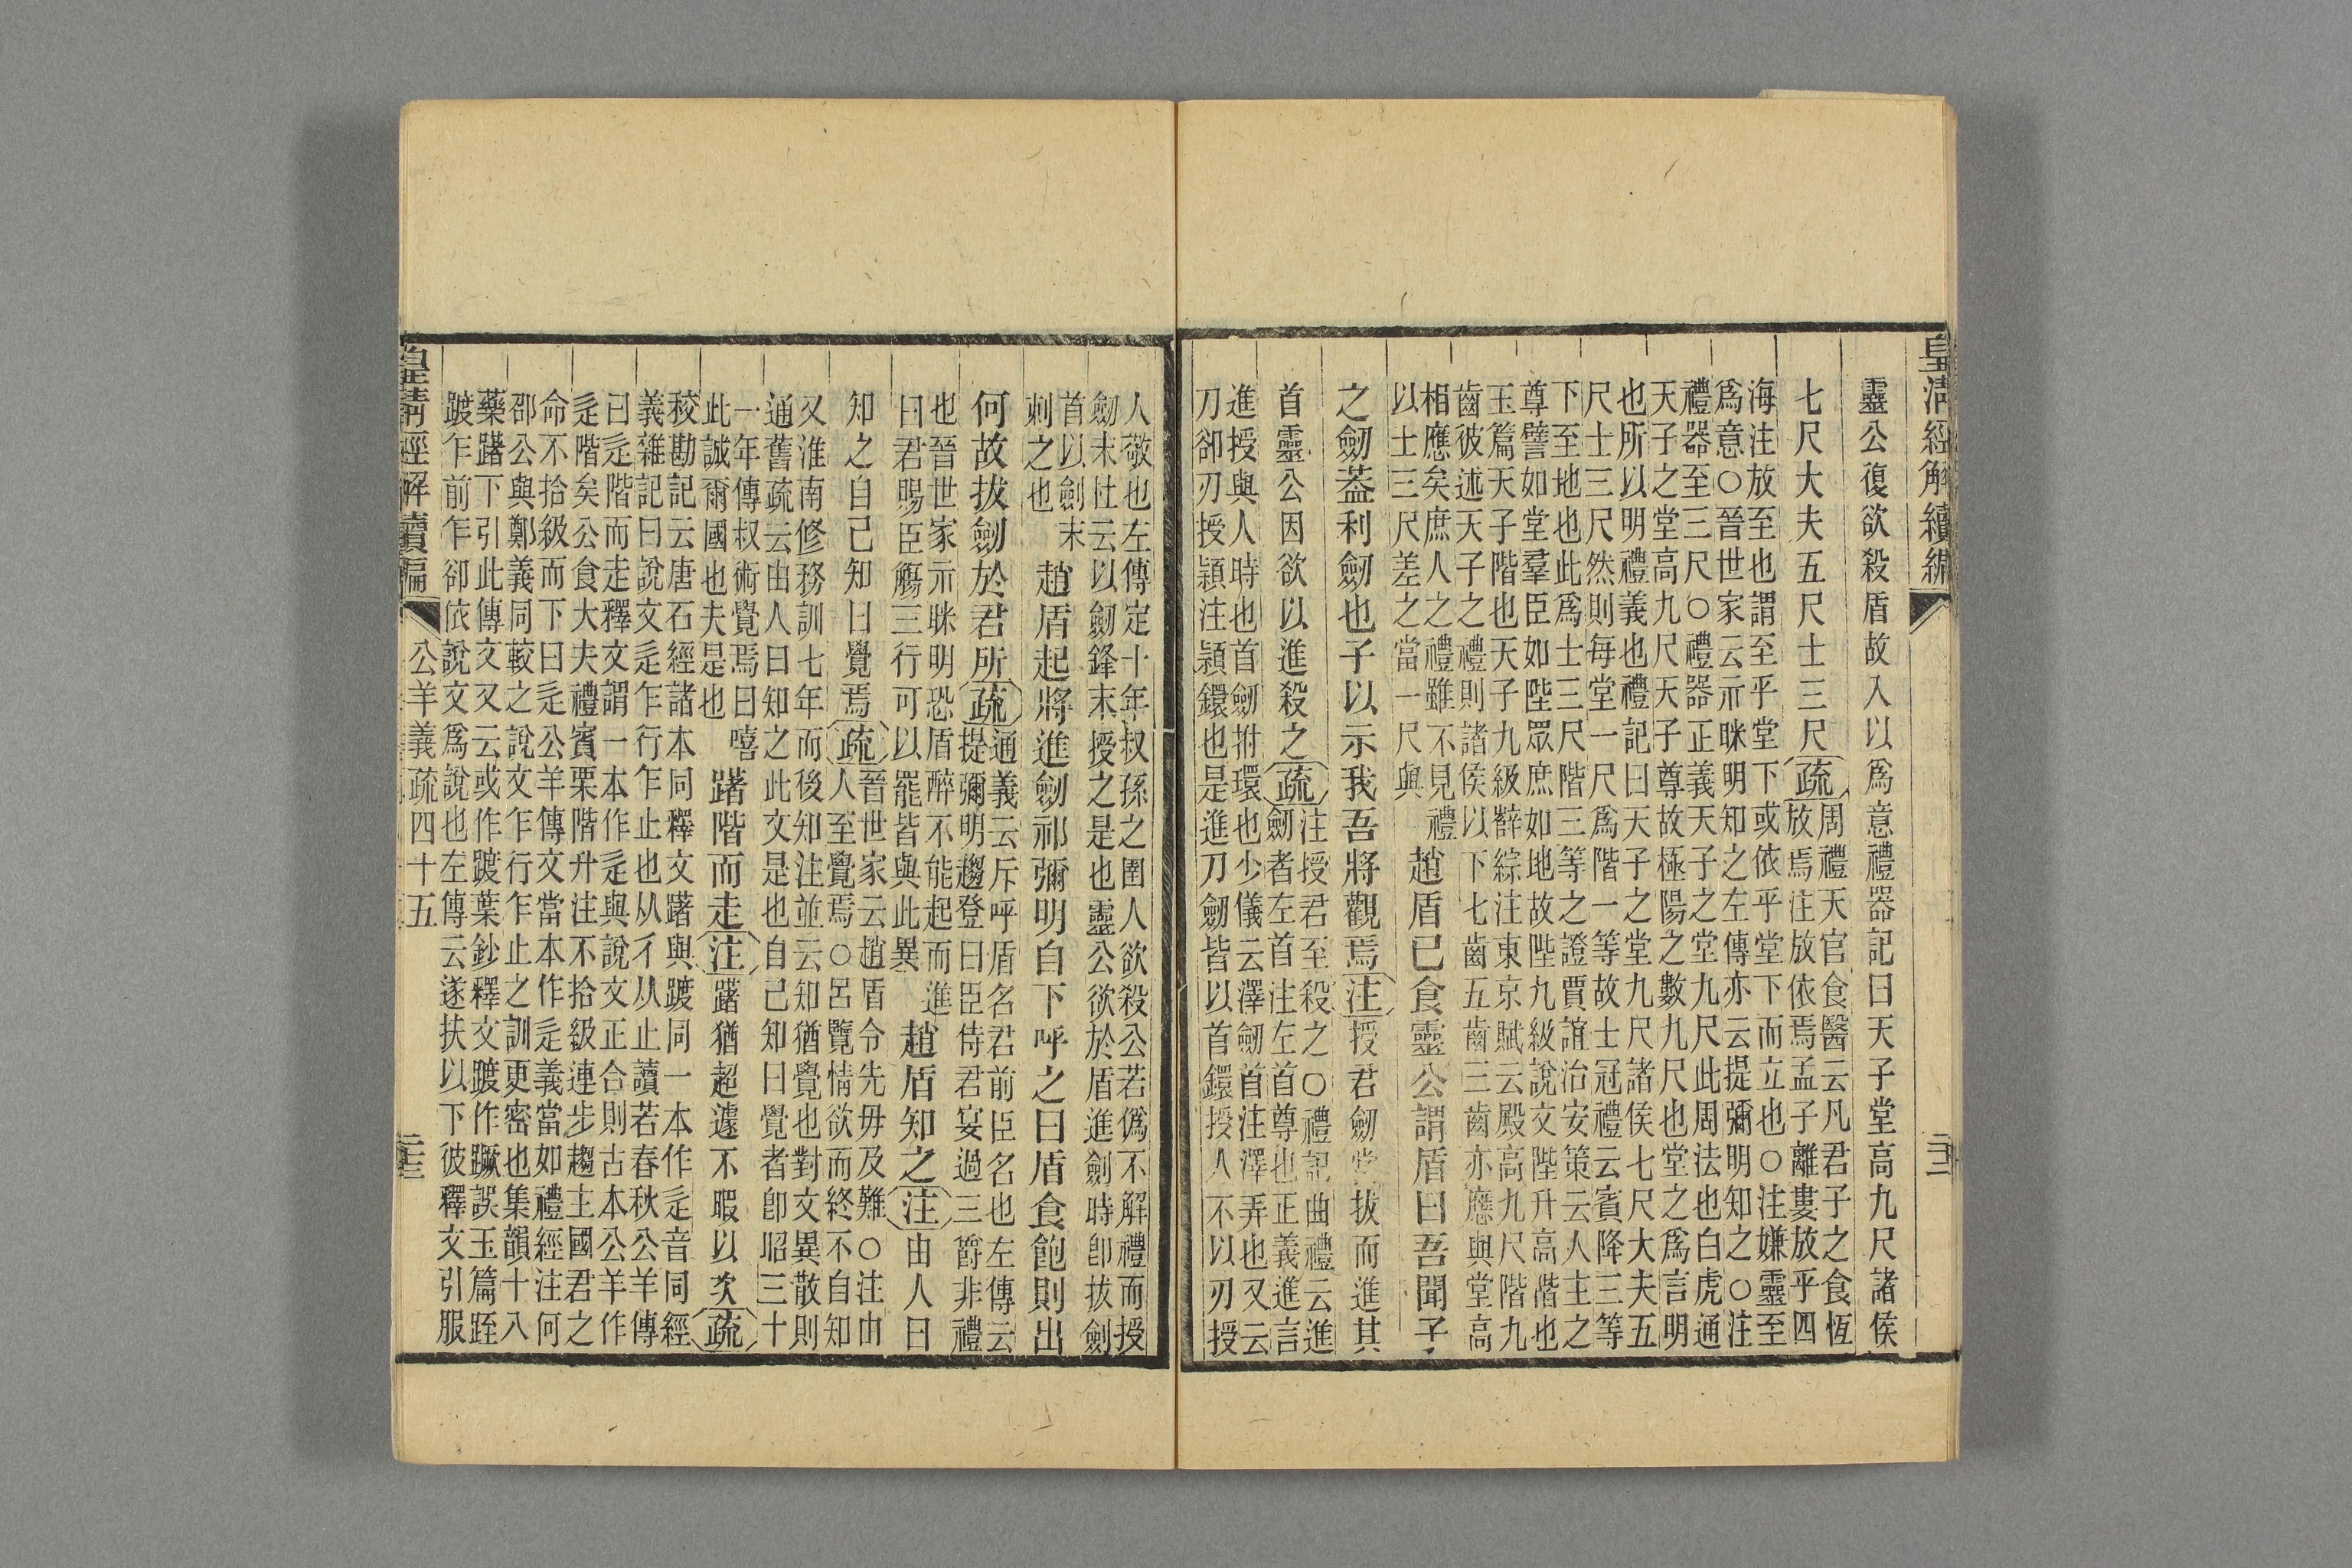 皇淸經解續編
靈公復欲殺盾故入以爲意禮器記曰天子堂高九尺諸侯
七尺大夫五尺士三尺疏周禮天官食醫云凡君子之食恆
放焉注放依焉孟子離婁放乎四
海注放至也謂至乎堂下或依乎堂下而立也○注嫌靈至
爲意○晉世家云示眯明知之左傳亦云提彌明知之○注
禮器至三尺○禮器正義天子之堂九尺此周法也白虎通
天子之堂高九尺天子尊故極陽之數九尺也堂之爲言明
也所以明禮義也禮記曰天子之堂九尺諸侯七尺大夫五
尺士三尺然則每堂一尺爲階一等故士冠禮云賓降三等
下至地也此爲士三尺階三等之證賈誼治安策云人主之
尊譬如堂羣臣如陛眾庶如地故陛九級說文陛升高階也
玉篇天子階也天子九級薛綜注東京賦云殿高九尺階九
齒彼述天子之禮則諸侯以下七齒五齒三齒亦應與堂高
相應矣庶人之禮雖不見禮
以士三尺差之當一尺與
趙盾已食靈公謂盾曰吾聞子
之劒葢利劒也子以示我吾將觀焉注授君劒當拔而進其
首靈公因欲以進殺之疏注授君至殺之○禮記曲禮云進
劒者左首注左首尊也正義進言
進授與人時也首劒拊環也少儀云澤劒首注澤弄也又云
刀卻刃授穎注穎鐶也是進刀劒皆以首鐶授人不以刃授
二十二
人敬也左傳定十年叔孫之圉人欲殺公若僞不解禮而授
劒末杜云以劒鋒末授之是也靈公欲於盾進劍時卽拔劍
首以劍末
刺之也
趙盾起將進劒祁彌明自下呼之曰盾食飽則出
何故拔劒於君所疏通義云斥呼盾名君前臣名也左傳云
提彌明趨登曰臣侍君宴過三爵非禮
也晉世家示眯明恐盾醉不能起而進
曰君賜臣觴三行可以罷皆與此異
趙盾知之注由人曰
知之自己知曰覺焉疏晉世家云趙盾令先毋及難○注由
人至覺焉○呂覽情欲而終不自知
又淮南修務訓七年而後知注並云知猶覺也對文異散則
通舊疏云由人曰知之此文是也自己知曰覺者卽昭三十
一年傳叔術覺焉曰嘻
此誠爾國也夫是也
躇階而走注躇猶超遽不暇以次疏
校勘記云唐石經諸本同釋文躇與踱同一本作辵音同經
義雜記曰說文辵乍行乍止也从彳从止讀若春秋公羊傳
曰辵階而走釋文謂一本作辵與說文正合則古本公羊作
辵階矣公食大夫禮賓栗階升注不拾級連步趨主國君之
命不拾級而下曰辵公羊傳文當本作辵義當如禮經注何
邵公與鄭義同較之說文乍行乍止之訓更密也集韻十八
藥躇下引此傳文又云或作踱葉鈔釋文踱作蹶誤玉篇跮
踱乍前乍卻依說文爲說也左傳云遂扶以下彼釋文引服
皇淸經解續編
公羊義疏四十五
二十三